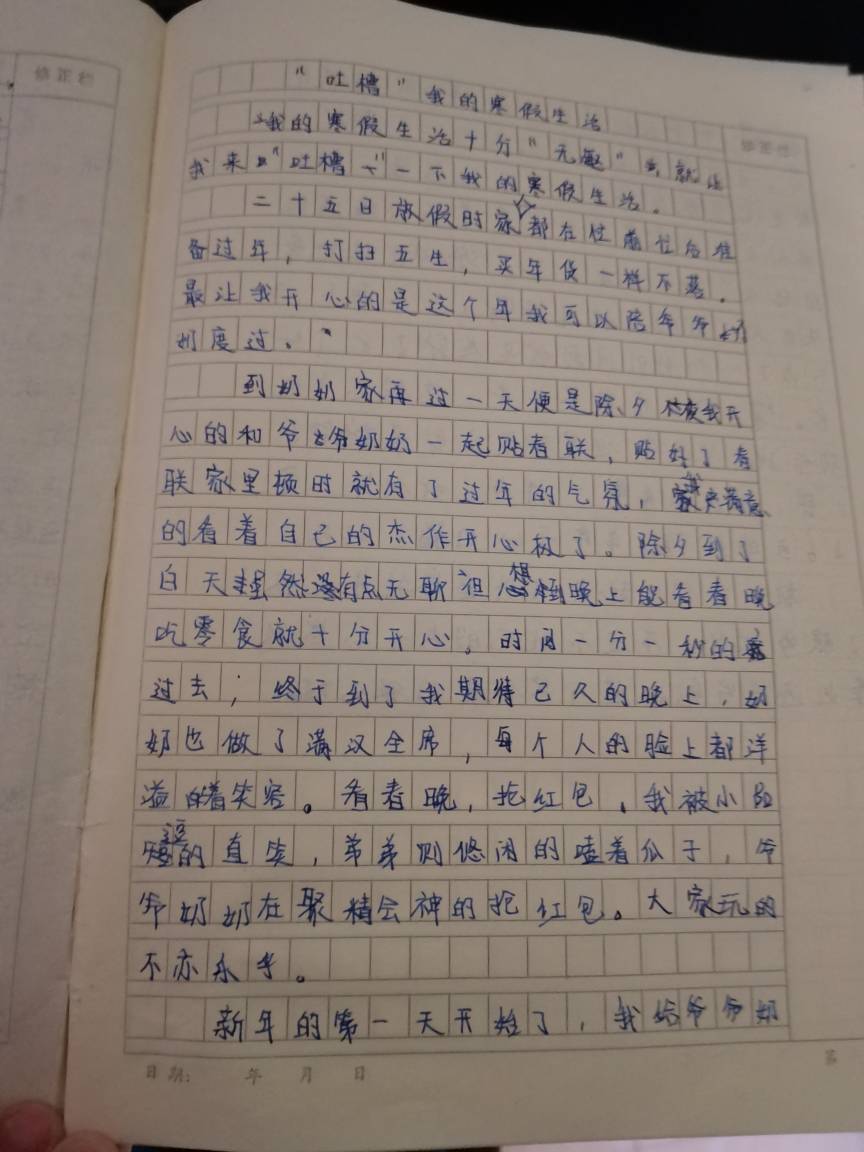 “吐槽”我的寒假生活
我的寒假生活十分“无趣”就让
我来“吐槽”一下我的寒假生活。
二十五日放假时家都在忙前忙后准
备过年，打扫卫生，买年货一样不落。
最让我开心的是这个年我可以陪爷爷奶
奶度过。
到奶奶家再过一天便是除夕夜我开
心的和爷爷奶奶一起贴春联，贴好了春
联家里顿时就有了过年的气氛，我满意
的看着自己的杰作开心极了。除夕到了
白天虽然有点无聊但想到晚上能看春晚
吃零食就十分开心。时间一分一秒的
过去，终于到了我期待已久的晚上，奶
奶也做了满汉全席，每个人的脸上都洋
溢着笑容。看春晚，抢红包，我被小品
逗的直笑，弟弟则悠闲的嗑着瓜子，爷
爷奶奶在聚精会神的抢红包。大家玩的
不亦乐乎。
新年的第一天开始了，我给爷爷奶
日期： 年 月 日
第
修正栏
修正栏